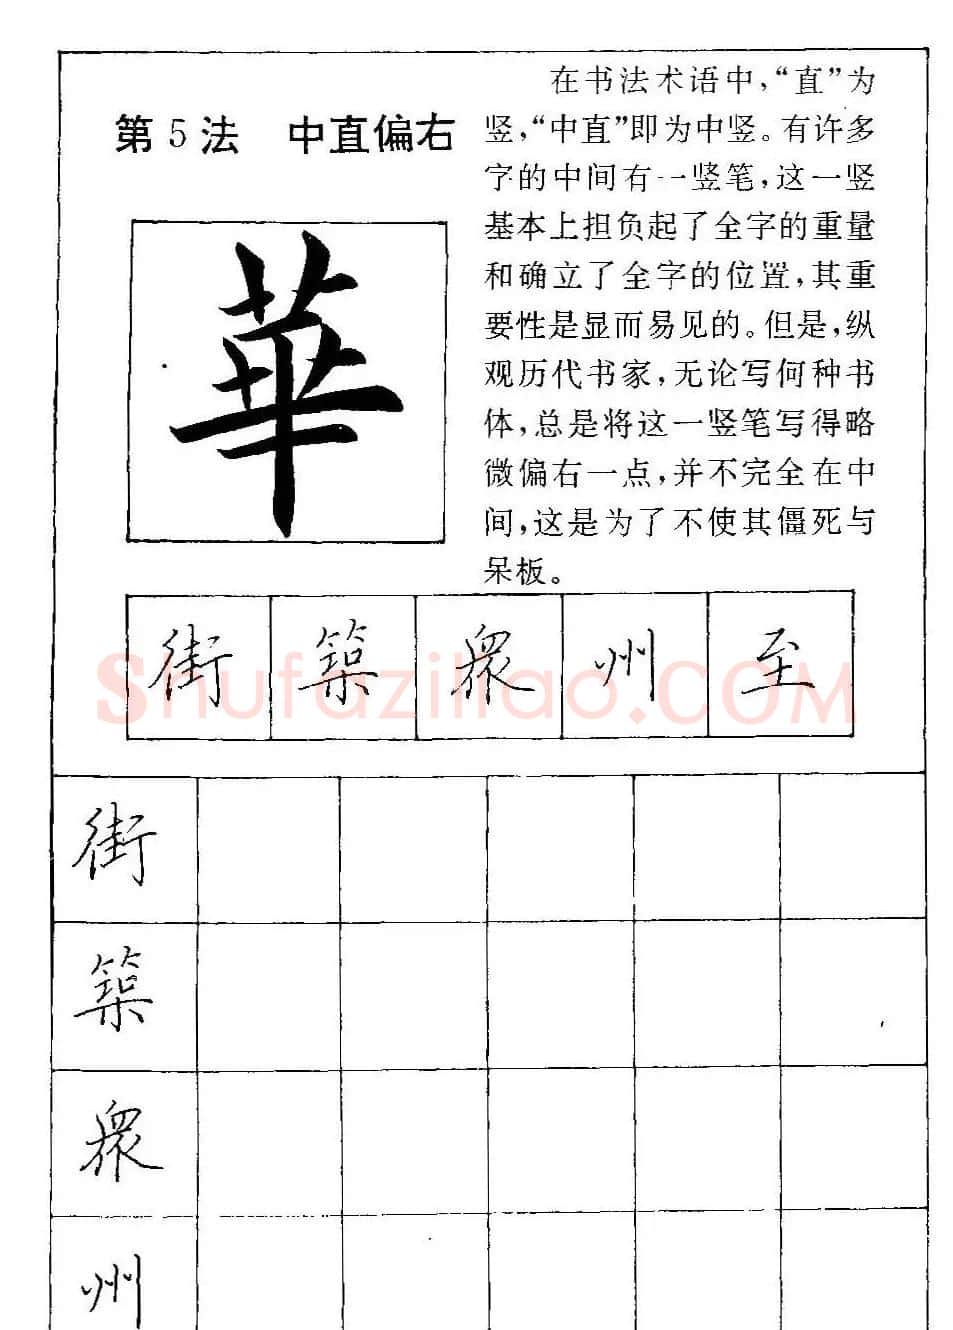 第5法 中直偏右
在书法术语中，“直”为
竖，“中直”即为中竖。有许多
字的中间有一竖笔，这一竖
基本上担负起了全字的重量
和确立了全字的位置，其重
要性是显而易见的。但是，纵
观历代书家，无论写何种书
体，总是将这一竖笔写得略
微偏右一点，并不完全在中
间，这是为了不使其僵死与
呆板。
華
街 築 眾 州 至
Shufaziliao.COM
街
築
眾
州